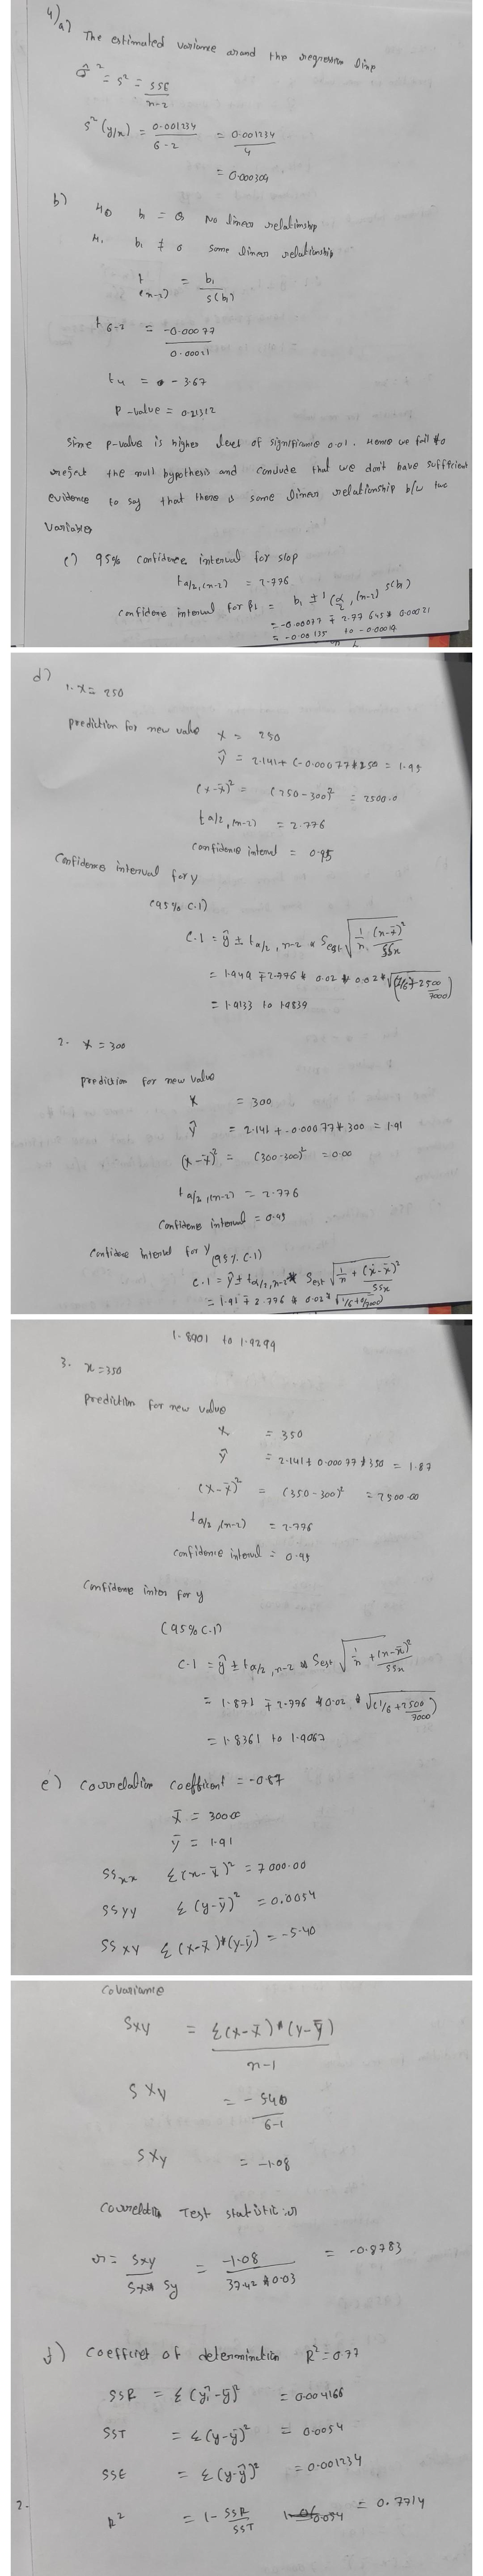 4) a) The estimated variance around the regression line
σ̂² = s² = SSE / n-2
s²(y/x) = 0.001234 / 6-2 = 0.001234 / 4
= 0.000309
b) H0 b1 = 0 No linear relationship
H1 b1 ≠ 0 Some linear relationship
t(n-2) = b1 / s(b1)
t6-2 = -0.00077 / 0.00021
t4 = -3.67
P-value = 0.21312
Since p-value is higher level of significance 0.01. Hence we fail to
reject the null hypothesis and conclude that we don't have sufficient
evidence to say that there is some linear relationship b/w two
variables
c) 95% confidence interval for slop
ta/2,(n-2) = 2.776
Confidence interval for β1 = b1 ± t(α/2,(n-2) s(b1)
= -0.00077 ∓ 2.77645 * 0.00021
= -0.00135 to -0.00019
d)
1. x = 250
prediction for new value x = 250
ŷ = 2.141 + (-0.00077*250 = 1.95
(x-x̄)² = (250-300)² = 2500.0
ta/2,(n-2) = 2.776
Confidence interval = 0.95
Confidence interval for y
(95% C.I)
C.I = ŷ ± ta/2,n-2 * Sest √ 1/n (x-x̄)² / SSx
= 1.949 ∓ 2.776 * 0.02 * 0.02 * √(1/6 + 2500/7000)
= 1.9133 to 1.9839
2. x = 300
prediction for new value
x = 300
ŷ = 2.141 + -0.00077*300 = 1.91
(x-x̄)² = (300-300)² = 0.00
ta/2,(n-2) = 2.776
Confidence interval = 0.95
Confidence Interval for y (95% C.I)
C.I = ŷ ± ta/2,n-2 * Sest √ 1/n + (x-x̄)² / SSx
= 1.91 ∓ 2.776 * 0.02 * √(1/6 + 0/7000)
1.8901 to 1.9299
3. x = 350
Prediction for new value
x = 350
ŷ = 2.141 + 0.00077*350 = 1.87
(x-x̄)² = (350-300)² = 2500.00
ta/2,(n-2) = 2.776
Confidence interval = 0.95
Confidence inter for y
(95% C.I)
C.I = ŷ ± ta/2,n-2 * Sest √ 1/n + (x-x̄)² / SSx
= 1.871 ∓ 2.776 * 0.02 * √(1/6 + 2500/7000)
= 1.8361 to 1.9067
e) Correlation coefficient = -0.87
x̄ = 300.00
ȳ = 1.91
SSxx Σ(x-x̄)² = 7000.00
SSyy Σ(y-ȳ)² = 0.0054
SSxy Σ(x-x̄)*(y-ȳ) = -5.40
Covariance
Sxy = Σ(x-x̄)*(y-ȳ) / n-1
Sxy = -540 / 6-1
Sxy = -1.08
Correlation Test statistic r
r = Sxy / Sx* Sy = -1.08 / 37.42 * 0.03 = -0.8783
f) Coefficient of determination R² = 0.77
SSR = Σ(ŷi-ȳ)² = 0.004166
SST = Σ(y-ȳ)² = 0.0054
SSE = Σ(y-ŷ)² = 0.001234
2.
R² = 1 - SSR / SST = 0.7714